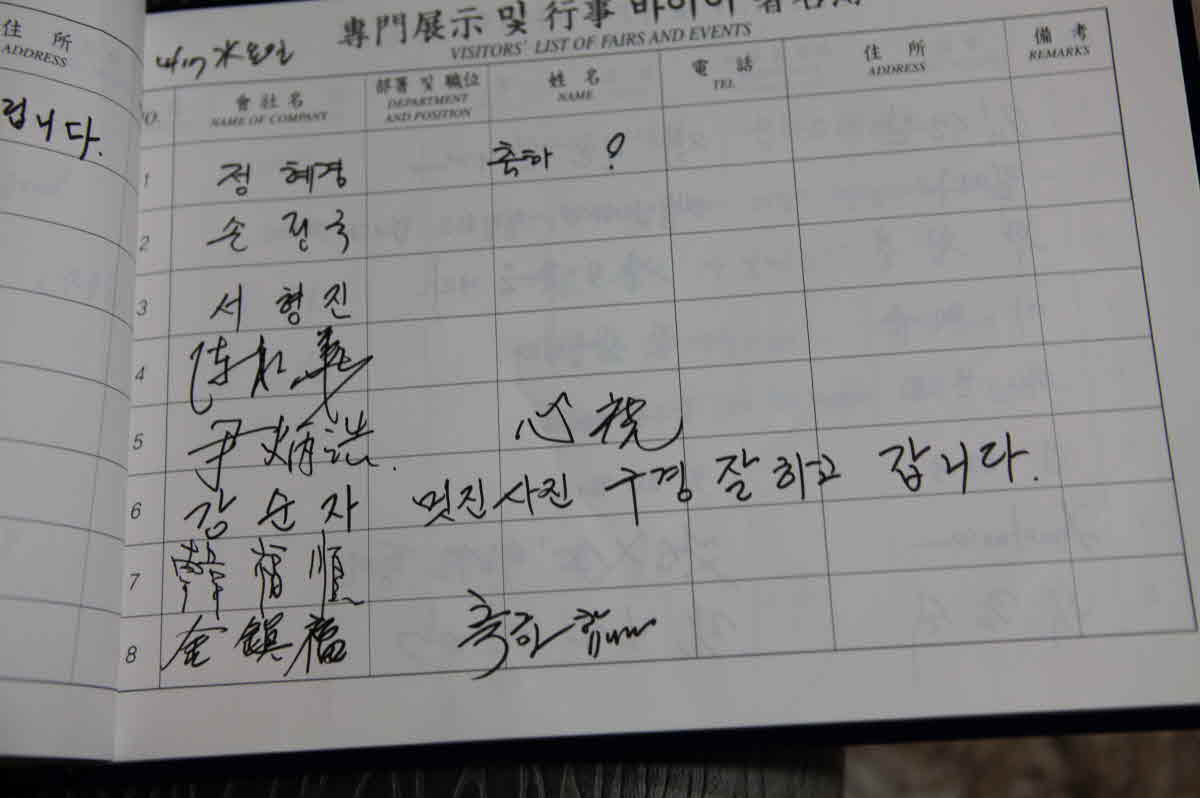 住 所
ADDRESS
럽니다.
專門展示 및 行事 바이어 署名簿
VISITORS' LIST OF FAIRS AND EVENTS
4/17 水요일
NO.
會社名
NAME OF COMPANY
部署 및 職位
DEPARTMENT
AND POSITION
姓 名
NAME
電 話
TEL
住 所
ADDRESS
備 考
REMARKS
1 정혜경 축하 ?
2 손정국
3 서형진
4
5 尹炳浩.
6 강순자 멋진 사진 구경 잘 하고 갑니다.
7 韓 順
8 金鎭福 축하